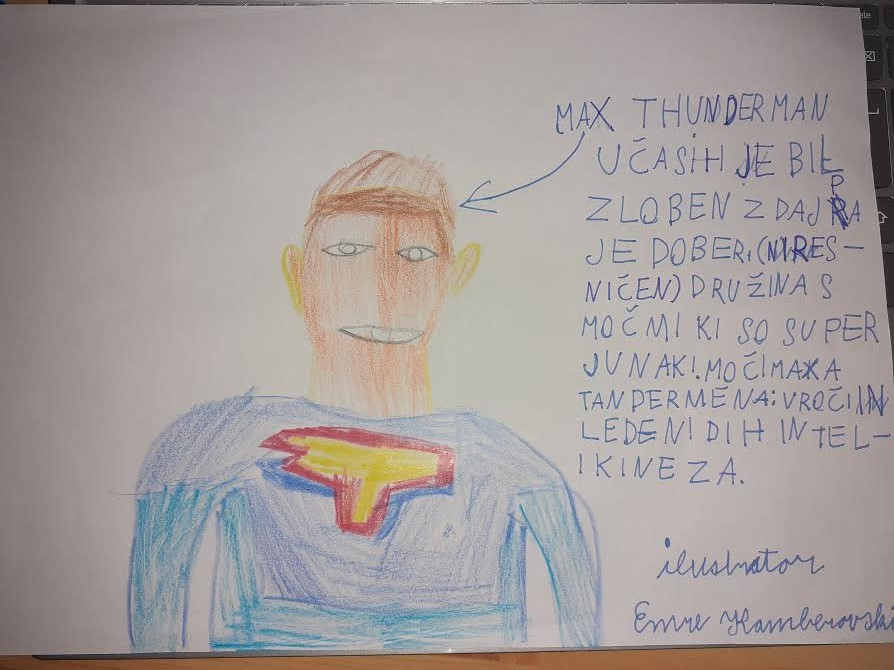 MAX THUNDERMAN
UČASIH JE BIL
ZLOBEN ZDAJ PA
JE DOBER. (NI RES-
NIČEN) DRUŽINA S
MOČMI KI SO SUPER
JUNAKI. MOČI MAXA
TANDERMENA: VROČI IN
LEDENI DIH IN TEL-
IKINEZA.
ilustrator
Emre Kamberovski